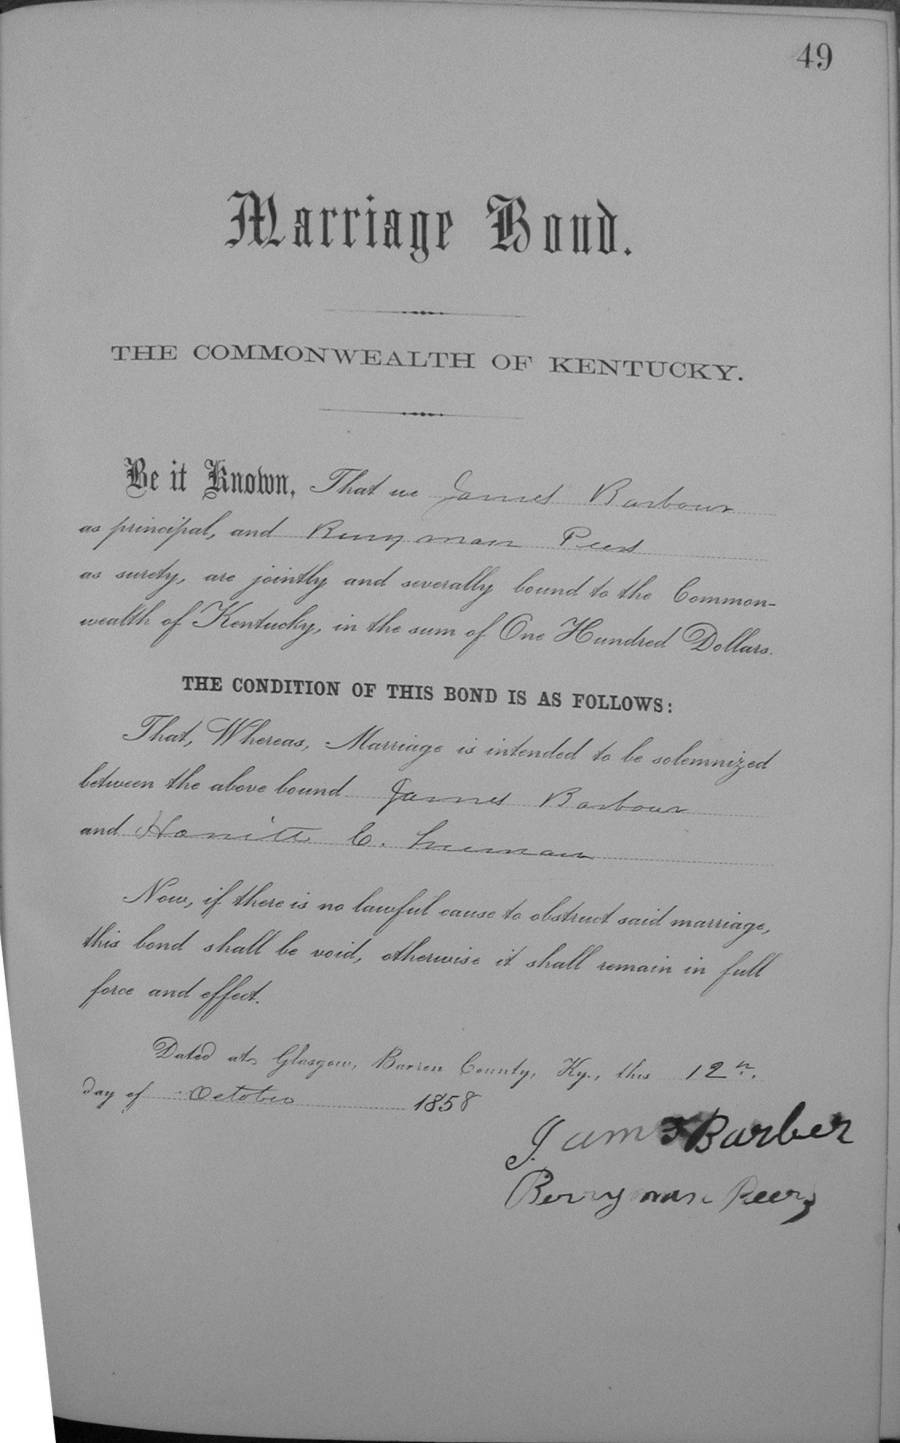 49
Marriage Bond.
THE COMMONWEALTH OF KENTUCKY.
Be it Known, That we James Barbour
as principal, and Berryman Peers
as surety, are jointly and severally bound to the Common-
wealth of Kentucky, in the sum of One Hundred Dollars.
THE CONDITION OF THIS BOND IS AS FOLLOWS:
That, Whereas, Marriage is intended to be solemnized
between the above bound James Barbour
and C.
Now, if there is no lawful cause to obstruct said marriage,
this bond shall be void, otherwise it shall remain in full
force and effect.
Dated at Glasgow, Barren County, Ky., this 12
day of October 1858
James Barber
Berryman Peers